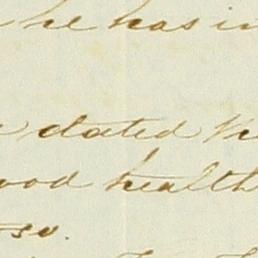 he has in
dated
good health
so.